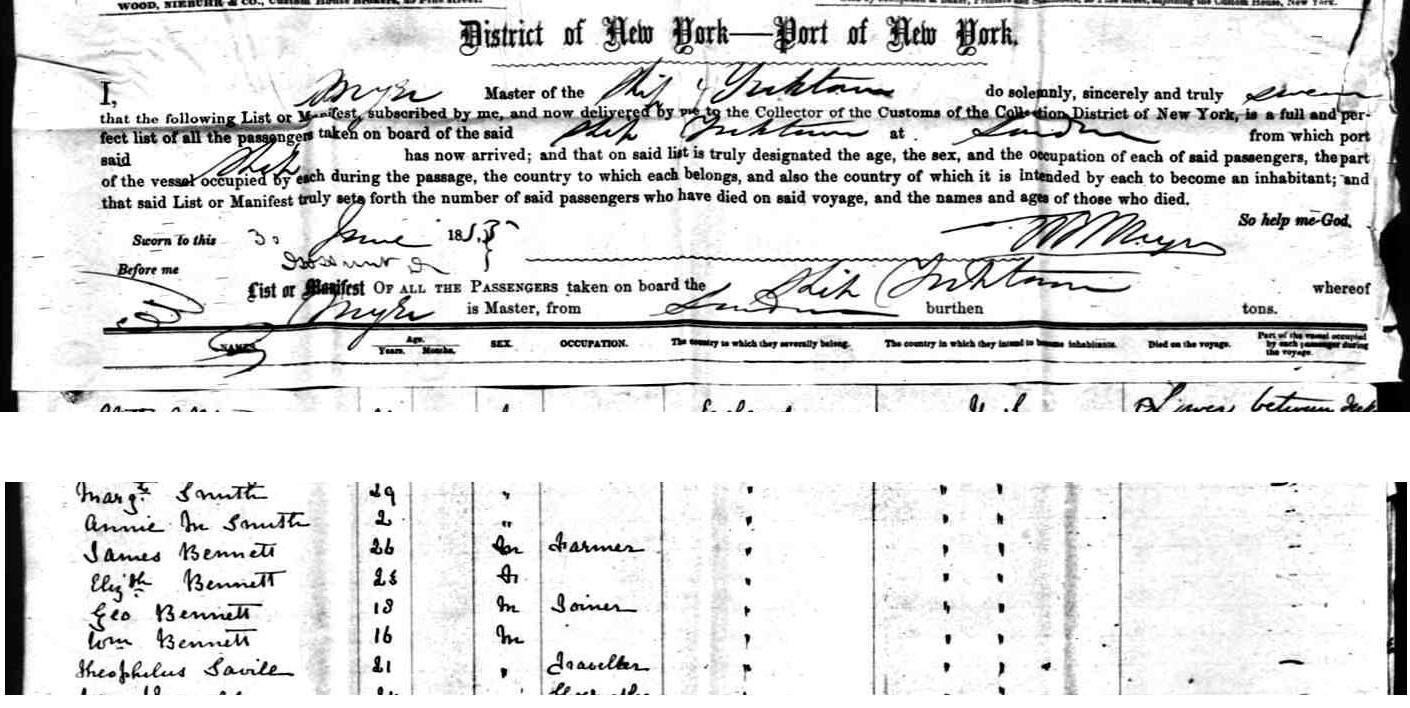 WOOD, NIEBUHR & CO., Custom House Brokers,
District of New York—Port of New York.
I, Myer Master of the Ship Yorktown do solemnly, sincerely and truly swear
that the following List or Manifest, subscribed by me, and now delivered by me to the Collector of the Customs of the Collection District of New York, is a full and per-
fect list of all the passengers taken on board of the said Ship Yorktown at London from which port
said Ship has now arrived; and that on said list is truly designated the age, the sex, and the occupation of each of said passengers, the part
of the vessel occupied by each during the passage, the country to which each belongs, and also the country of which it is intended by each to become an inhabitant; and
that said List or Manifest truly sets forth the number of said passengers who have died on said voyage, and the names and ages of those who died.
So help me God.
Sworn to this 30 June 185
Before me
List or Manifest OF ALL THE PASSENGERS taken on board the Ship Yorktown whereof
is Master, from London burthen tons.
NAMES. Age. Years. Months. SEX. OCCUPATION. The country to which they severally belong. The country in which they intend to become inhabitants. Died on the voyage. Part of the vessel occupied by each passenger during the voyage.
Lower between Deck
Margt Smith 29 " " " "
Annie M Smith 2 " " " "
James Bennett 26 M Farmer " " "
Elizth Bennett 25 F " " "
Geo Bennett 18 M Joiner " " "
Wm Bennett 16 M " " "
Theophilus Savile 21 " Traveller " " "